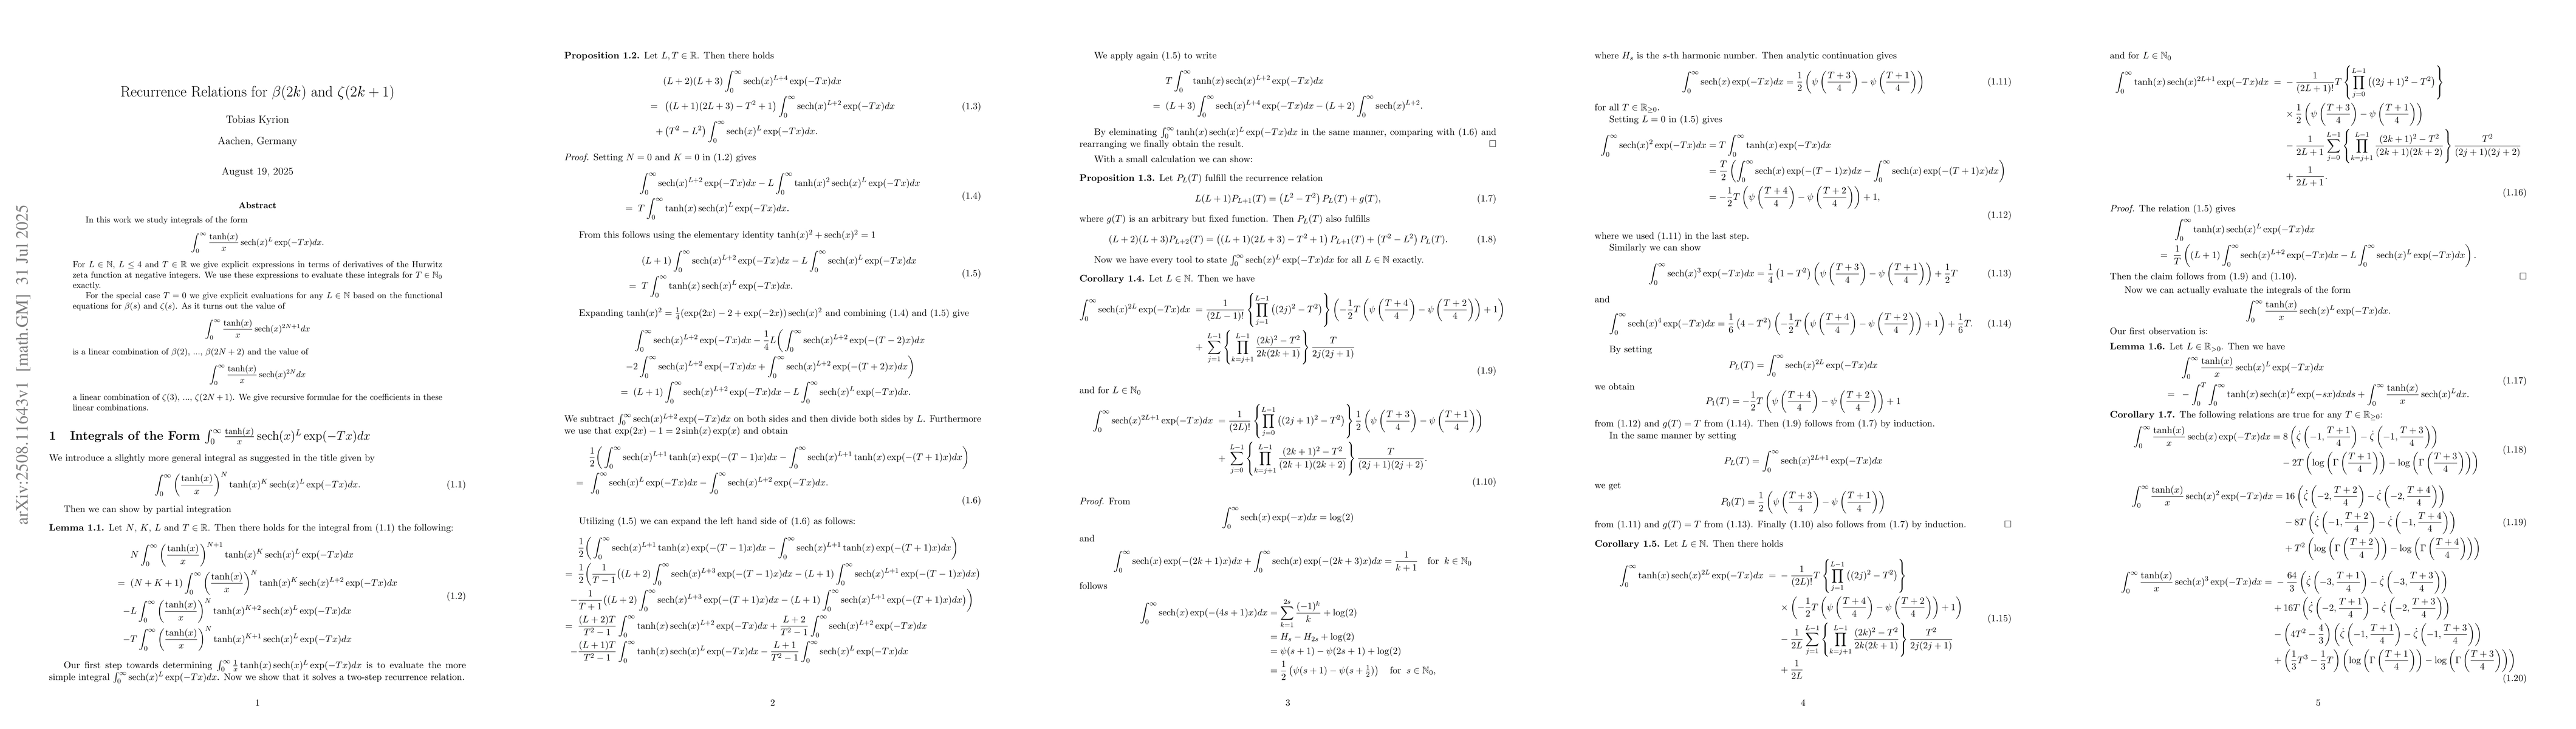 arXiv:2508.11643v1 [math.GM] 31 Jul 2025
Recurrence Relations for β(2k) and ζ(2k + 1)
Tobias Kyrion
Aachen, Germany
August 19, 2025
Abstract
In this work we study integrals of the form
∫_0^∞ tanh(x)/x sech(x)^L exp(−Tx)dx.
For L ∈ ℕ, L ≤ 4 and T ∈ ℝ we give explicit expressions in terms of derivatives of the Hurwitz
zeta function at negative integers. We use these expressions to evaluate these integrals for T ∈ ℕ_0
exactly.
For the special case T = 0 we give explicit evaluations for any L ∈ ℕ based on the functional
equations for β(s) and ζ(s). As it turns out the value of
∫_0^∞ tanh(x)/x sech(x)^{2N+1}dx
is a linear combination of β(2), ..., β(2N + 2) and the value of
∫_0^∞ tanh(x)/x sech(x)^{2N}dx
a linear combination of ζ(3), ..., ζ(2N + 1). We give recursive formulae for the coefficients in these
linear combinations.
1 Integrals of the Form ∫_0^∞ tanh(x)/x sech(x)^L exp(−Tx)dx
We introduce a slightly more general integral as suggested in the title given by
∫_0^∞ (tanh(x)/x)^N tanh(x)^K sech(x)^L exp(−Tx)dx. (1.1)
Then we can show by partial integration
Lemma 1.1. Let N, K, L and T ∈ ℝ. Then there holds for the integral from (1.1) the following:
N ∫_0^∞ (tanh(x)/x)^{N+1} tanh(x)^K sech(x)^L exp(−Tx)dx
= (N + K + 1) ∫_0^∞ (tanh(x)/x)^N tanh(x)^K sech(x)^{L+2} exp(−Tx)dx
−L ∫_0^∞ (tanh(x)/x)^N tanh(x)^{K+2} sech(x)^L exp(−Tx)dx (1.2)
−T ∫_0^∞ (tanh(x)/x)^N tanh(x)^{K+1} sech(x)^L exp(−Tx)dx
Our first step towards determining ∫_0^∞ 1/x tanh(x) sech(x)^L exp(−Tx)dx is to evaluate the more
simple integral ∫_0^∞ sech(x)^L exp(−Tx)dx. Now we show that it solves a two-step recurrence relation.
1
Proposition 1.2. Let L, T ∈ ℝ. Then there holds
(L + 2)(L + 3) ∫_0^∞ sech(x)^{L+4} exp(−Tx)dx
= ((L + 1)(2L + 3) − T² + 1) ∫_0^∞ sech(x)^{L+2} exp(−Tx)dx (1.3)
+ (T² − L²) ∫_0^∞ sech(x)^L exp(−Tx)dx.
Proof. Setting N = 0 and K = 0 in (1.2) gives
∫_0^∞ sech(x)^{L+2} exp(−Tx)dx − L ∫_0^∞ tanh(x)² sech(x)^L exp(−Tx)dx
= T ∫_0^∞ tanh(x) sech(x)^L exp(−Tx)dx. (1.4)
From this follows using the elementary identity tanh(x)² + sech(x)² = 1
(L + 1) ∫_0^∞ sech(x)^{L+2} exp(−Tx)dx − L ∫_0^∞ sech(x)^L exp(−Tx)dx
= T ∫_0^∞ tanh(x) sech(x)^L exp(−Tx)dx. (1.5)
Expanding tanh(x)² = 1/4(exp(2x) − 2 + exp(−2x)) sech(x)² and combining (1.4) and (1.5) give
∫_0^∞ sech(x)^{L+2} exp(−Tx)dx − 1/4 L(∫_0^∞ sech(x)^{L+2} exp(−(T − 2)x)dx
−2 ∫_0^∞ sech(x)^{L+2} exp(−Tx)dx + ∫_0^∞ sech(x)^{L+2} exp(−(T + 2)x)dx)
= (L + 1) ∫_0^∞ sech(x)^{L+2} exp(−Tx)dx − L ∫_0^∞ sech(x)^L exp(−Tx)dx.
We subtract ∫_0^∞ sech(x)^{L+2} exp(−Tx)dx on both sides and then divide both sides by L. Furthermore
we use that exp(2x) − 1 = 2 sinh(x) exp(x) and obtain
1/2(∫_0^∞ sech(x)^{L+1} tanh(x) exp(−(T − 1)x)dx − ∫_0^∞ sech(x)^{L+1} tanh(x) exp(−(T + 1)x)dx)
= ∫_0^∞ sech(x)^L exp(−Tx)dx − ∫_0^∞ sech(x)^{L+2} exp(−Tx)dx.
(1.6)
Utilizing (1.5) we can expand the left hand side of (1.6) as follows:
1/2(∫_0^∞ sech(x)^{L+1} tanh(x) exp(−(T − 1)x)dx − ∫_0^∞ sech(x)^{L+1} tanh(x) exp(−(T + 1)x)dx)
= 1/2(1/(T − 1)((L + 2) ∫_0^∞ sech(x)^{L+3} exp(−(T − 1)x)dx − (L + 1) ∫_0^∞ sech(x)^{L+1} exp(−(T − 1)x)dx)
−1/(T + 1)((L + 2) ∫_0^∞ sech(x)^{L+3} exp(−(T + 1)x)dx − (L + 1) ∫_0^∞ sech(x)^{L+1} exp(−(T + 1)x)dx))
= (L + 2)T/(T² − 1) ∫_0^∞ tanh(x) sech(x)^{L+2} exp(−Tx)dx + (L + 2)/(T² − 1) ∫_0^∞ sech(x)^{L+2} exp(−Tx)dx
−(L + 1)T/(T² − 1) ∫_0^∞ tanh(x) sech(x)^L exp(−Tx)dx − (L + 1)/(T² − 1) ∫_0^∞ sech(x)^L exp(−Tx)dx
2
We apply again (1.5) to write
T ∫_0^∞ tanh(x) sech(x)^{L+2} exp(−Tx)dx
= (L + 3) ∫_0^∞ sech(x)^{L+4} exp(−Tx)dx − (L + 2) ∫_0^∞ sech(x)^{L+2}.
By eleminating ∫_0^∞ tanh(x) sech(x)^L exp(−Tx)dx in the same manner, comparing with (1.6) and
rearranging we finally obtain the result. □
With a small calculation we can show:
Proposition 1.3. Let P_L(T) fulfill the recurrence relation
L(L + 1)P_{L+1}(T) = (L² − T²) P_L(T) + g(T), (1.7)
where g(T) is an arbitrary but fixed function. Then P_L(T) also fulfills
(L + 2)(L + 3)P_{L+2}(T) = ((L + 1)(2L + 3) − T² + 1) P_{L+1}(T) + (T² − L²) P_L(T). (1.8)
Now we have every tool to state ∫_0^∞ sech(x)^L exp(−Tx)dx for all L ∈ ℕ exactly.
Corollary 1.4. Let L ∈ ℕ. Then we have
∫_0^∞ sech(x)^{2L} exp(−Tx)dx = 1/(2L − 1)! {∏_{j=1}^{L−1} ((2j)² − T²)} (−1/2 T (ψ((T + 4)/4) − ψ((T + 2)/4)) + 1)
+ ∑_{j=1}^{L−1} {∏_{k=j+1}^{L−1} ((2k)² − T²)/(2k(2k + 1))} T/(2j(2j + 1))
(1.9)
and for L ∈ ℕ_0
∫_0^∞ sech(x)^{2L+1} exp(−Tx)dx = 1/(2L)! {∏_{j=0}^{L−1} ((2j + 1)² − T²)} 1/2 (ψ((T + 3)/4) − ψ((T + 1)/4))
+ ∑_{j=0}^{L−1} {∏_{k=j+1}^{L−1} ((2k + 1)² − T²)/((2k + 1)(2k + 2))} T/((2j + 1)(2j + 2)).
(1.10)
Proof. From
∫_0^∞ sech(x) exp(−x)dx = log(2)
and
∫_0^∞ sech(x) exp(−(2k + 1)x)dx + ∫_0^∞ sech(x) exp(−(2k + 3)x)dx = 1/(k + 1) for k ∈ ℕ_0
follows
∫_0^∞ sech(x) exp(−(4s + 1)x)dx = ∑_{k=1}^{2s} (−1)^k/k + log(2)
= H_s − H_{2s} + log(2)
= ψ(s + 1) − ψ(2s + 1) + log(2)
= 1/2 (ψ(s + 1) − ψ(s + 1/2)) for s ∈ ℕ_0,
3
where H_s is the s-th harmonic number. Then analytic continuation gives
∫_0^∞ sech(x) exp(−Tx)dx = 1/2 (ψ((T + 3)/4) − ψ((T + 1)/4)) (1.11)
for all T ∈ ℝ_{≥0}.
Setting L = 0 in (1.5) gives
∫_0^∞ sech(x)² exp(−Tx)dx = T ∫_0^∞ tanh(x) exp(−Tx)dx
= T/2 (∫_0^∞ sech(x) exp(−(T − 1)x)dx − ∫_0^∞ sech(x) exp(−(T + 1)x)dx)
= −1/2 T (ψ((T + 4)/4) − ψ((T + 2)/4)) + 1,
(1.12)
where we used (1.11) in the last step.
Similarly we can show
∫_0^∞ sech(x)³ exp(−Tx)dx = 1/4 (1 − T²) (ψ((T + 3)/4) − ψ((T + 1)/4)) + 1/2 T (1.13)
and
∫_0^∞ sech(x)⁴ exp(−Tx)dx = 1/6 (4 − T²) (−1/2 T (ψ((T + 4)/4) − ψ((T + 2)/4)) + 1) + 1/6 T. (1.14)
By setting
P_L(T) = ∫_0^∞ sech(x)^{2L} exp(−Tx)dx
we obtain
P_1(T) = −1/2 T (ψ((T + 4)/4) − ψ((T + 2)/4)) + 1
from (1.12) and g(T) = T from (1.14). Then (1.9) follows from (1.7) by induction.
In the same manner by setting
P_L(T) = ∫_0^∞ sech(x)^{2L+1} exp(−Tx)dx
we get
P_0(T) = 1/2 (ψ((T + 3)/4) − ψ((T + 1)/4))
from (1.11) and g(T) = T from (1.13). Finally (1.10) also follows from (1.7) by induction. □
Corollary 1.5. Let L ∈ ℕ. Then there holds
∫_0^∞ tanh(x) sech(x)^{2L} exp(−Tx)dx = − 1/(2L)! T {∏_{j=1}^{L−1} ((2j)² − T²)}
× (−1/2 T (ψ((T + 4)/4) − ψ((T + 2)/4)) + 1)
− 1/2L ∑_{j=1}^{L−1} {∏_{k=j+1}^{L−1} ((2k)² − T²)/(2k(2k + 1))} T²/(2j(2j + 1)) (1.15)
+ 1/2L
4
and for L ∈ ℕ_0
∫_0^∞ tanh(x) sech(x)^{2L+1} exp(−Tx)dx = − 1/(2L + 1)! T {∏_{j=0}^{L−1} ((2j + 1)² − T²)}
× 1/2 (ψ((T + 3)/4) − ψ((T + 1)/4))
− 1/(2L + 1) ∑_{j=0}^{L−1} {∏_{k=j+1}^{L−1} ((2k + 1)² − T²)/((2k + 1)(2k + 2))} T²/((2j + 1)(2j + 2))
+ 1/(2L + 1).
(1.16)
Proof. The relation (1.5) gives
∫_0^∞ tanh(x) sech(x)^L exp(−Tx)dx
= 1/T ((L + 1) ∫_0^∞ sech(x)^{L+2} exp(−Tx)dx − L ∫_0^∞ sech(x)^L exp(−Tx)dx).
Then the claim follows from (1.9) and (1.10). □
Now we can actually evaluate the integrals of the form
∫_0^∞ tanh(x)/x sech(x)^L exp(−Tx)dx.
Our first observation is:
Lemma 1.6. Let L ∈ ℝ_{>0}. Then we have
∫_0^∞ tanh(x)/x sech(x)^L exp(−Tx)dx
= − ∫_0^T ∫_0^∞ tanh(x) sech(x)^L exp(−sx)dxds + ∫_0^∞ tanh(x)/x sech(x)^L dx. (1.17)
Corollary 1.7. The following relations are true for any T ∈ ℝ_{≥0}:
∫_0^∞ tanh(x)/x sech(x) exp(−Tx)dx = 8 (ζ̇(−1, (T + 1)/4) − ζ̇(−1, (T + 3)/4))
− 2T (log(Γ((T + 1)/4)) − log(Γ((T + 3)/4))) (1.18)
∫_0^∞ tanh(x)/x sech(x)² exp(−Tx)dx = 16 (ζ̇(−2, (T + 2)/4) − ζ̇(−2, (T + 4)/4))
− 8T (ζ̇(−1, (T + 2)/4) − ζ̇(−1, (T + 4)/4)) (1.19)
+ T² (log(Γ((T + 2)/4)) − log(Γ((T + 4)/4)))
∫_0^∞ tanh(x)/x sech(x)³ exp(−Tx)dx = − 64/3 (ζ̇(−3, (T + 1)/4) − ζ̇(−3, (T + 3)/4))
+ 16T (ζ̇(−2, (T + 1)/4) − ζ̇(−2, (T + 3)/4))
− (4T² − 4/3) (ζ̇(−1, (T + 1)/4) − ζ̇(−1, (T + 3)/4))
+ (1/3 T³ − 1/3 T) (log(Γ((T + 1)/4)) − log(Γ((T + 3)/4)))
(1.20)
5